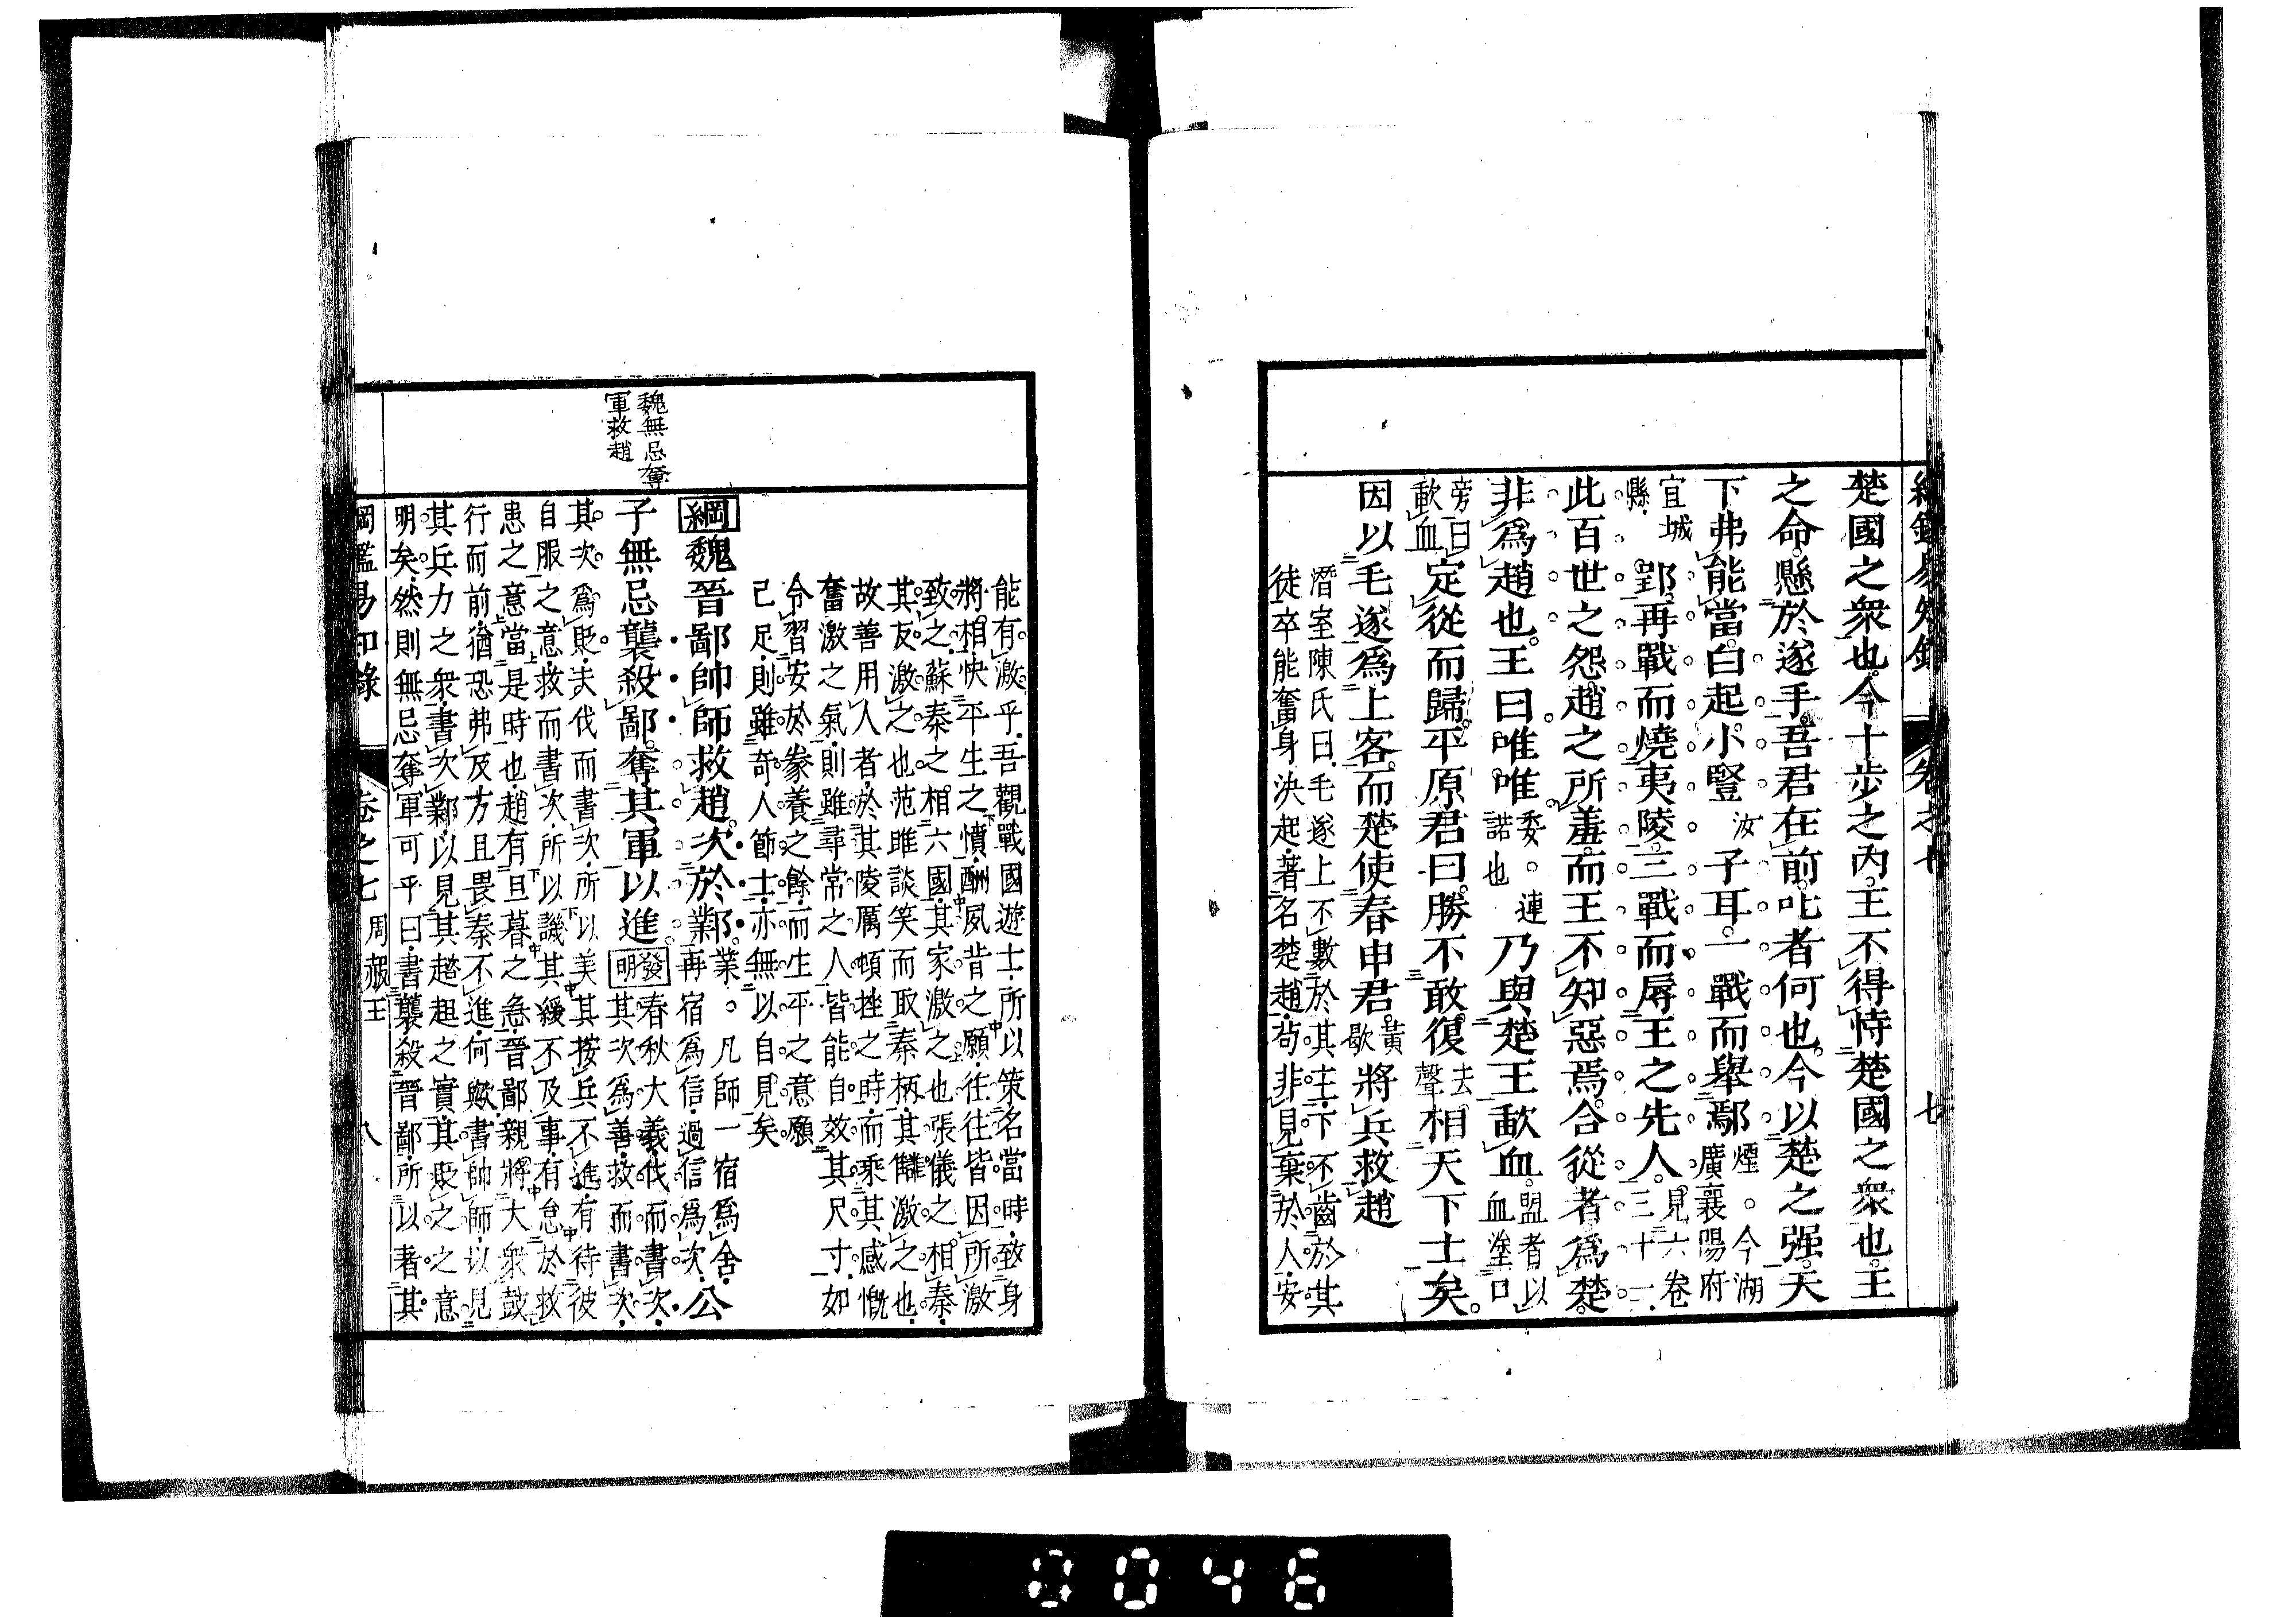 綱鑑易知錄 卷之七 七
楚國之衆也今十步之內王不得恃楚國之衆也王
之命懸於遂手吾君在前叱者何也今以楚之强天
下弗能當白起小豎汝子耳一戰而舉鄢煙。今湖廣襄陽府
宜城縣郢見六卷三十一再戰而燒夷陵三戰而辱王之先人
此百世之怨趙之所羞而王不知惡焉合從者爲楚
非爲趙也王曰唯唯委。連諾也乃與楚王歃血盟者以血塗口
旁曰歃血定從而歸平原君曰勝不敢復去聲相天下士矣
因以毛遂爲上客而楚使春申君黃歇將兵救趙
潛室陳氏曰毛遂上不數於其主下不齒於其
徒卒能奮身決起著名楚趙苟非見棄於人安
能有激乎吾觀戰國遊士所以策名當時致身
將相快平生之憤酬夙昔之願往往皆因所激
致之蘇秦之相六國其家激之也張儀之相秦
其友激之也范雎談笑而取秦柄其讎激之也
故善用人者於其陵厲頓挫之時而乘其感慨
奮激之氣則雖尋常之人皆能自效其尺寸如
令習安於豢養之餘而生平之意願
已足則雖奇人節士亦無以自見矣
魏無忌奪
軍救趙
綱魏晉鄙帥師救趙次於鄴業。凡師一宿爲舍再宿爲信過信爲次公
子無忌襲殺鄙奪其軍以進發明春秋大義伐而書次
其次爲善救而書次
其次爲貶夫伐而書次所以美其按兵不進有待彼
自服之意救而書次所以譏其緩不及事有怠於救
患之意當是時也趙有旦暮之急晉鄙親將大衆鼓
行而前猶恐弗及方且畏秦不進何歟書帥師以見
其兵力之衆書次鄴以見其趦趄之實其貶之之意
明矣然則無忌奪軍可乎曰書襲殺晉鄙所以著其
綱鑑易知錄 卷之七 周赧王 八
0046